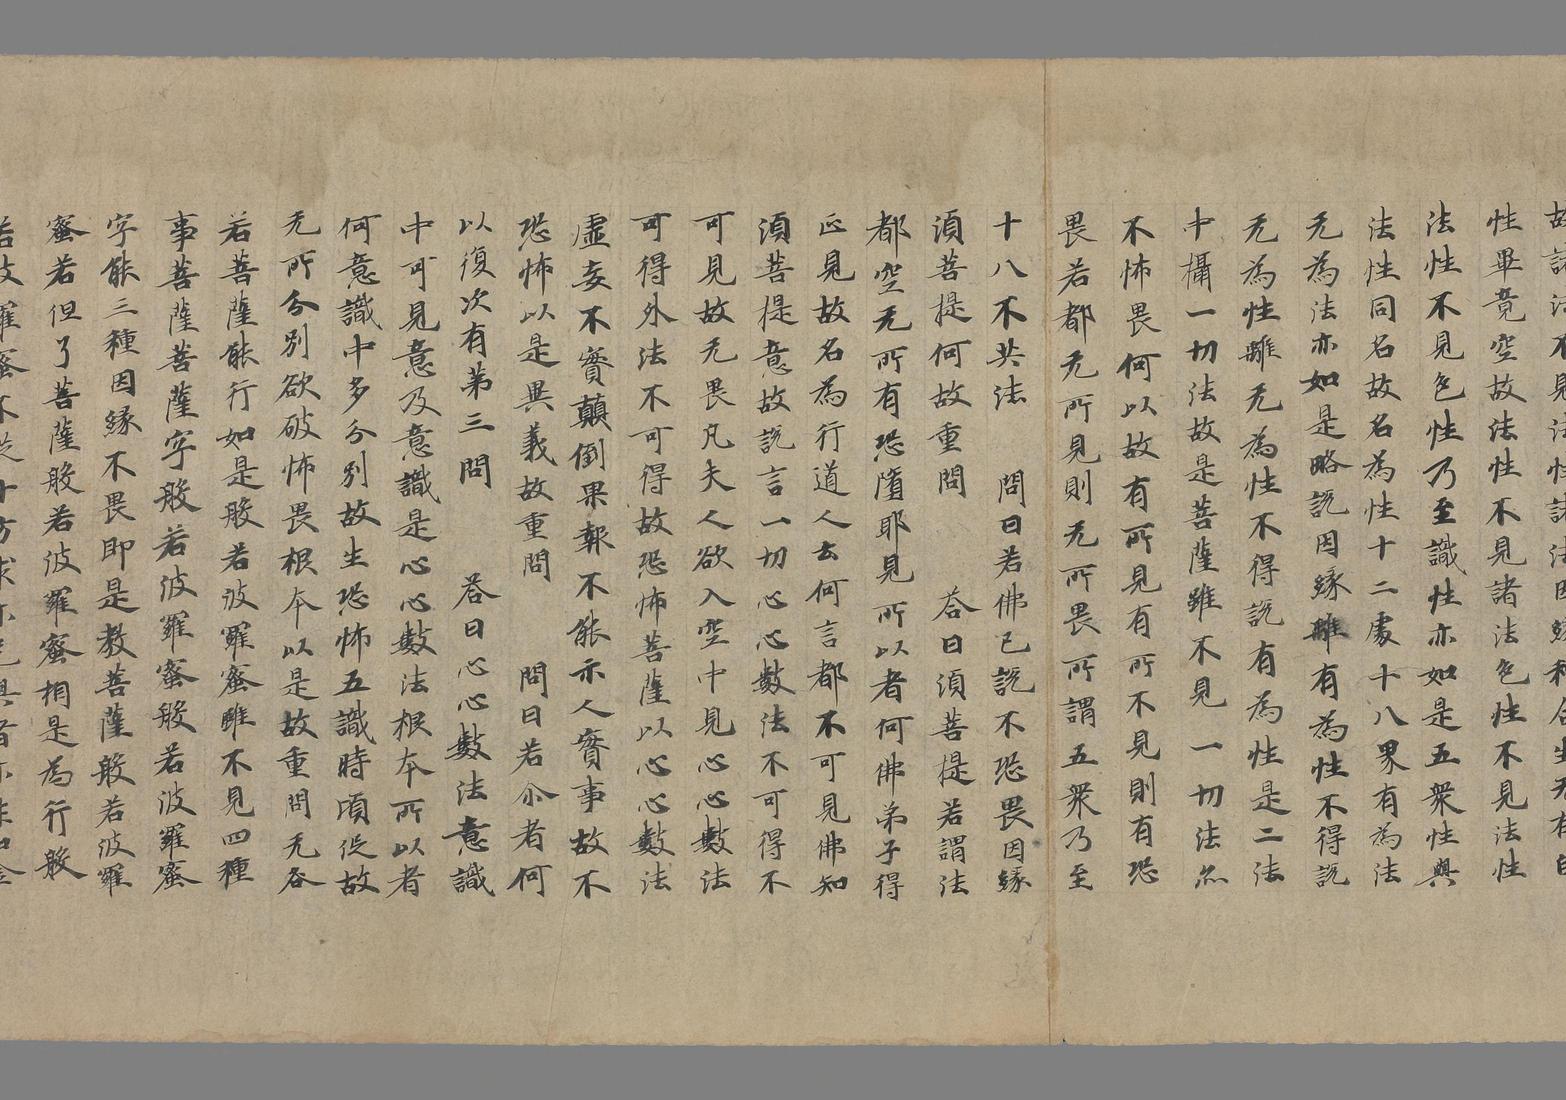 故諸法不見法性諸法因緣和合生无有自
性畢竟空故法性不見諸法色性不見法性
法性不見色性乃至識性亦如是五衆性與
法性同名故名為性十二處十八界有為法
无為法亦如是略說因緣離有為性不得說
无為性離无為性不得說有為性是二法
中攝一切法故是菩薩雖不見一切法亦
不怖畏何以故有所見有所不見則有恐
畏若都无所見則无所畏所謂五衆乃至
十八不共法 問曰若佛已說不恐畏因緣
須菩提何故重問 荅曰須菩提若謂法
都空无所有恐隨耶見所以者何佛弟子得
正見故名為行道人云何言都不可見佛知
須菩提意故說言一切心心數法不可得不
可見故无畏凡夫人欲入空中見心心數法
可得外法不可得故恐怖菩薩以心心數法
虛妄不實顛倒果報不能示人實事故不
恐怖以是異義故重問 問曰若尒者何
以復次有第三問 荅曰心心數法意識
中可見意及意識是心心數法根本所以者
何意識中多分別故生恐怖五識時頃促故
无所分別欲破怖畏根本以是故重問无咎
若菩薩能行如是般若波羅蜜雖不見四種
事菩薩菩薩字般若波羅蜜般若波羅蜜
字能三種因緣不畏即是教菩薩般若波羅
蜜若但了菩薩般若波羅蜜相是為行般
若波羅蜜不從十方求亦